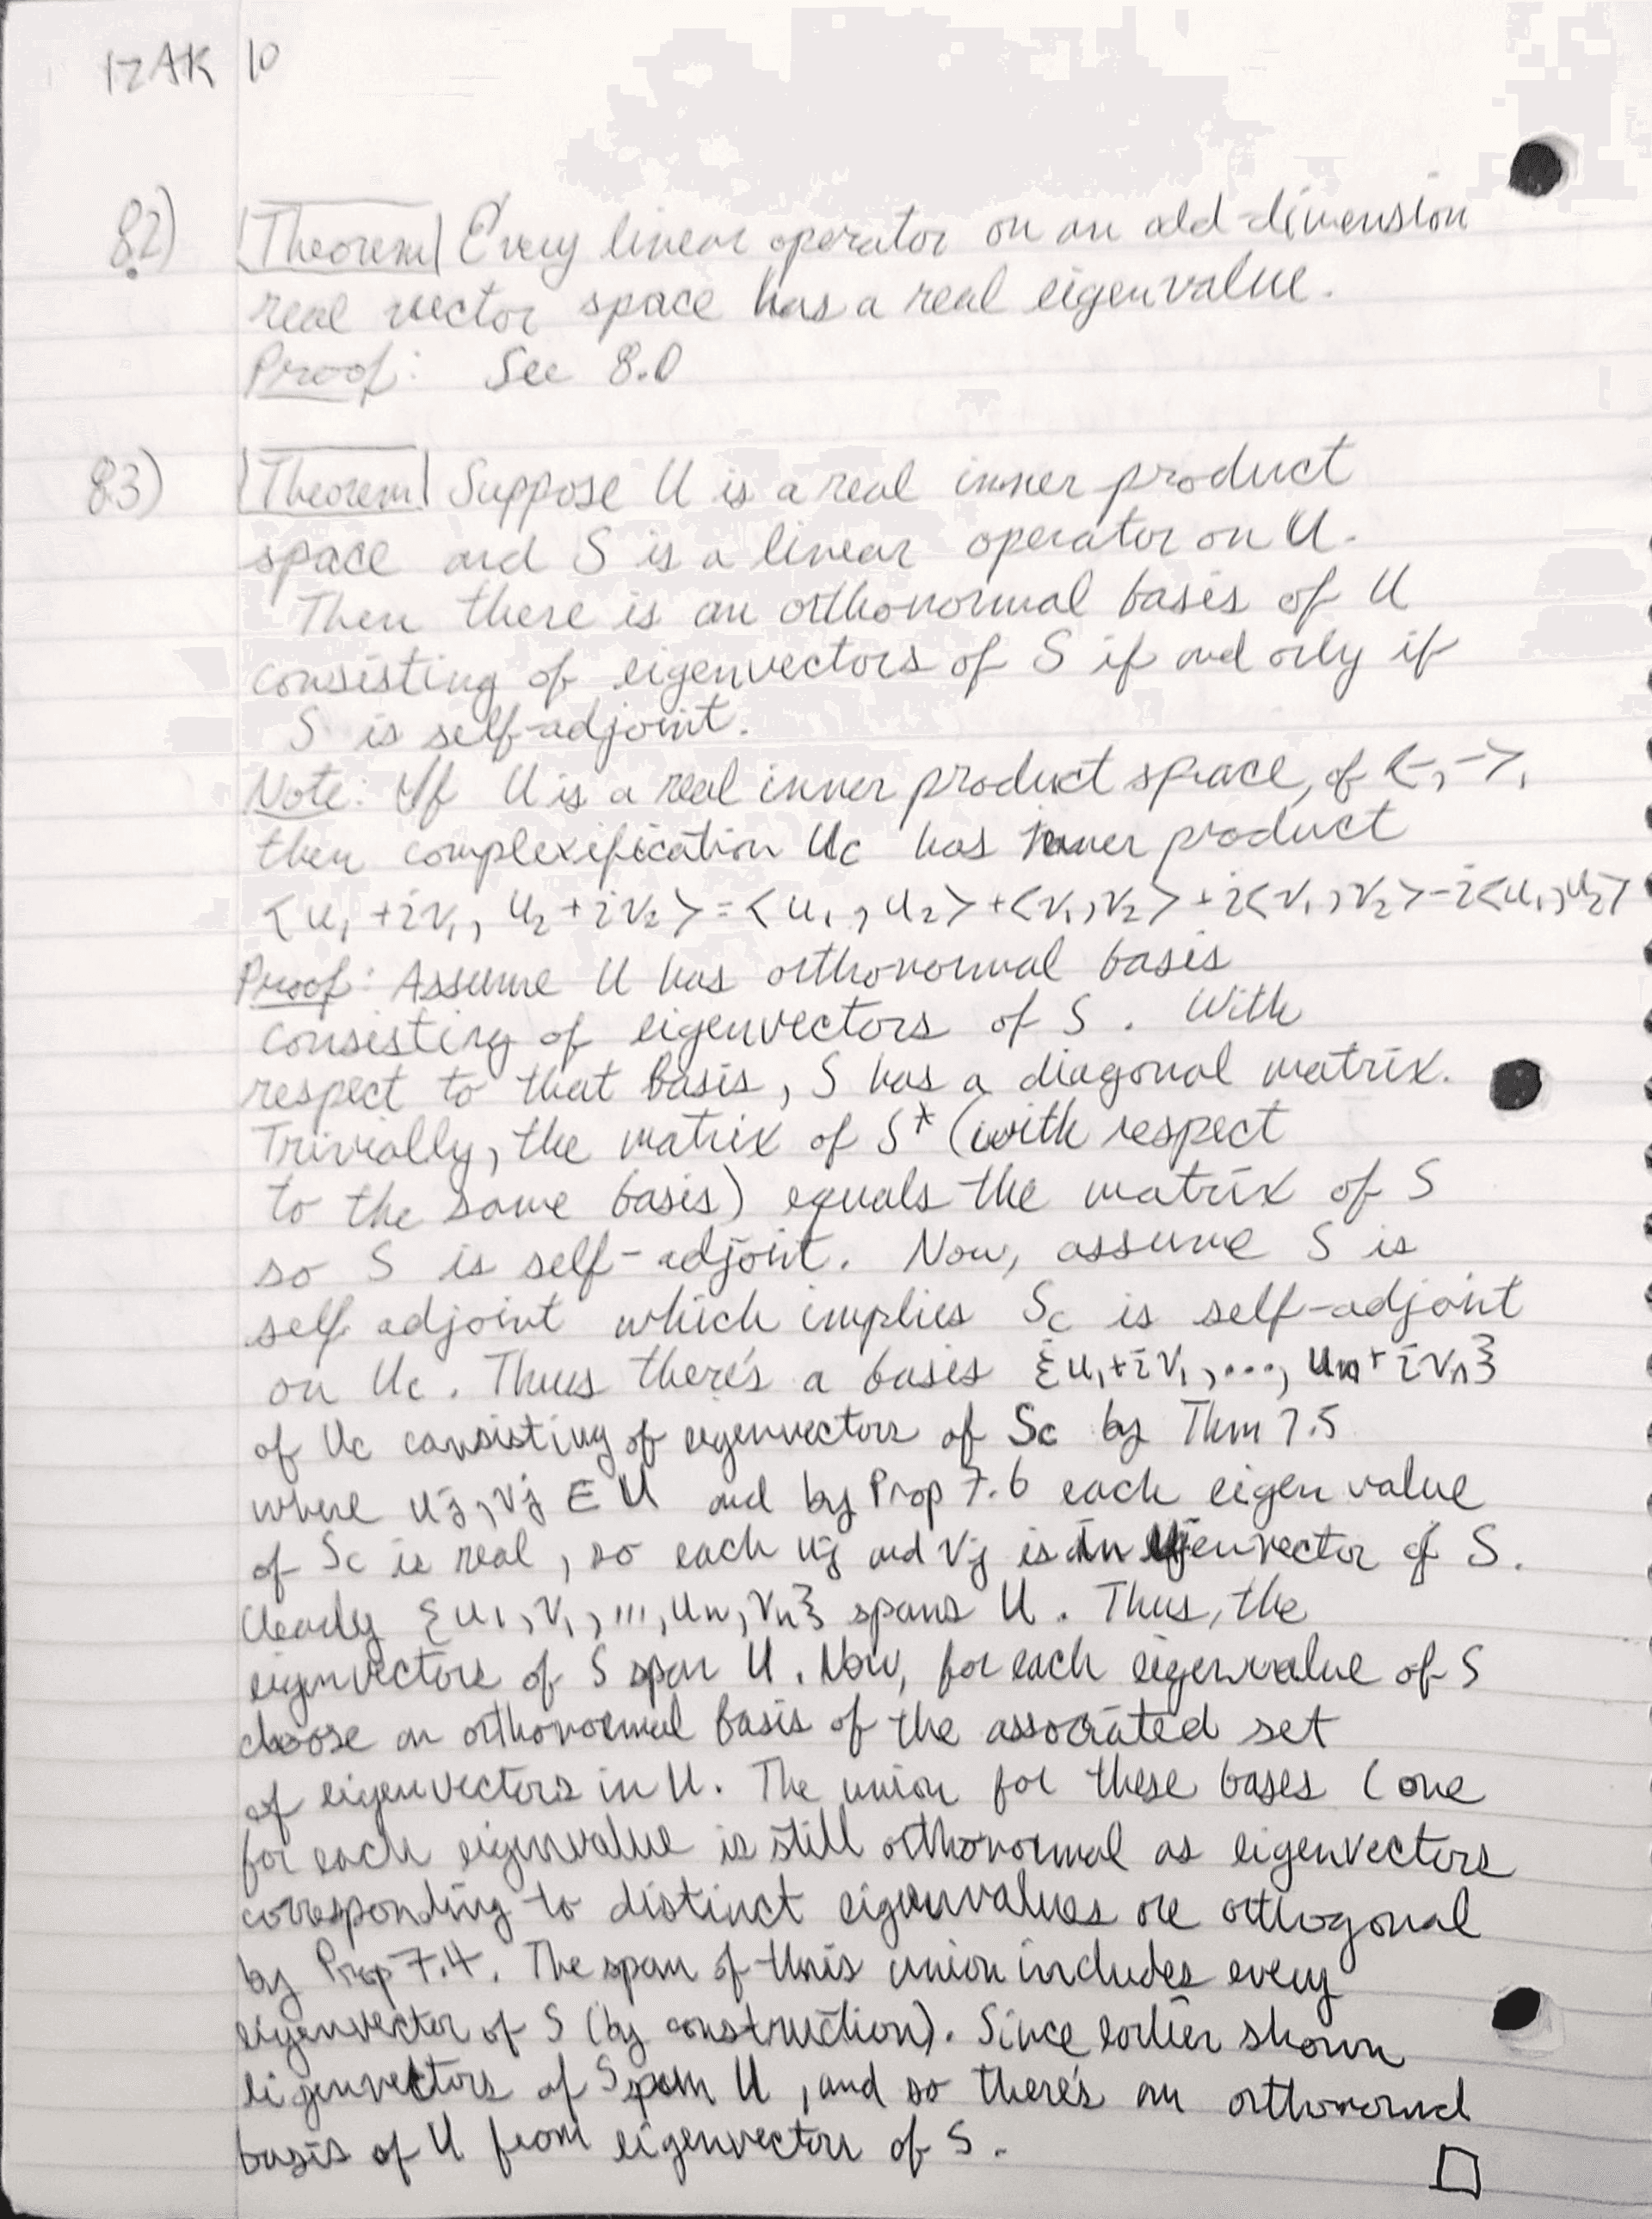 IZAK 10
8.2) Theorem Every linear operator on an odd-dimension
real vector space has a real eigenvalue.
Proof: See 8.0
8.3) Theorem Suppose U is a real inner product
space and S is a linear operator on U.
Then there is an orthonormal basis of U
consisting of eigenvectors of S if and only if
S is self-adjoint.
Note: If U is a real inner product space, of <-,->,
then complexification Uc has inner product
<u₁+iv₁, u₂+iv₂>=<u₁,u₂>+<v₁,v₂>+i<v₁,v₂>-i<u₁,u₂>
Proof: Assume U has orthonormal basis
consisting of eigenvectors of S. With
respect to that basis, S has a diagonal matrix.
Trivially, the matrix of S* (with respect
to the same basis) equals the matrix of S
so S is self-adjoint. Now, assume S is
self adjoint which implies Sc is self-adjoint
on Uc. Thus there's a basis {u₁+iv₁,..., uₙ+ivₙ}
of Uc consisting of eigenvectors of Sc by Thm 7.5
where uj,vj ∈ U and by Prop 7.6 each eigenvalue
of Sc is real, so each uj and vj is an eigenvector of S.
Clearly {u₁,v₁,...,uₙ,vₙ} spans U. Thus, the
eigenvectors of S span U. Now, for each eigenvalue of S
choose an orthonormal basis of the associated set
of eigenvectors in U. The union for these bases (one
for each eigenvalue is still orthonormal as eigenvectors
corresponding to distinct eigenvalues are orthogonal
by Prop 7.4. The span of this union includes every
eigenvector of S (by construction). Since earlier shown
eigenvectors of S span U, and so there's an orthonormal
basis of U from eigenvectors of S.
□